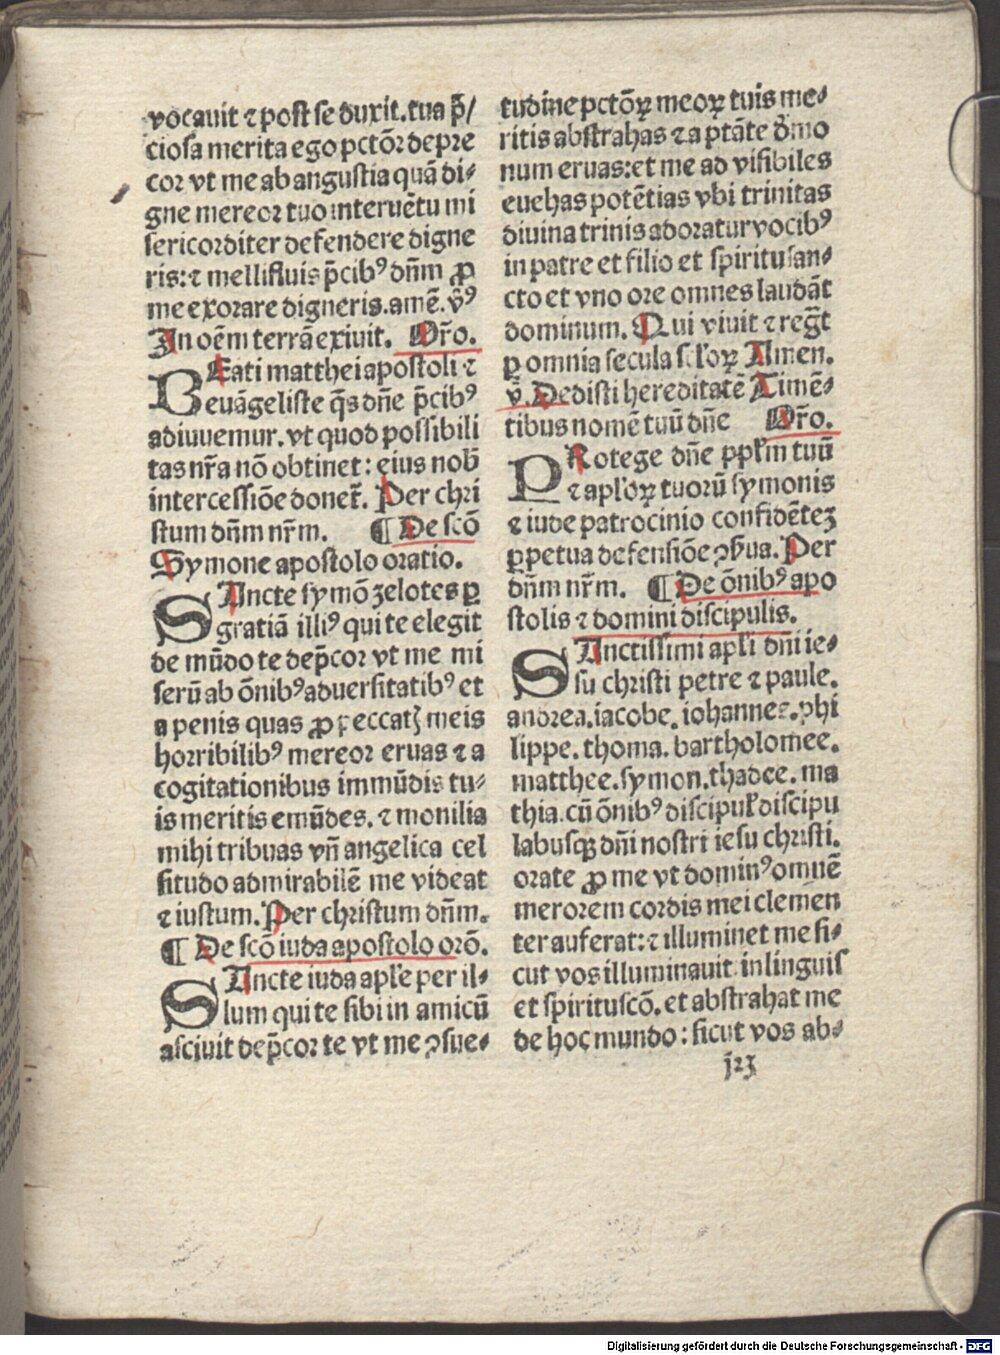 vocauit ⁊ post se duxit. tua p̄/
ciosa merita ego pctōꝛ depre
coꝛ vt me ab angustia quā di⸗
gne mereoꝛ tuo interuētu mi
sericoꝛditer defendere digne
ris: ⁊ mellifluis p̄cibꝰ dn̄m ꝓ
me exoꝛare digneris. amē. v̄ꝰ
In oēm terrā exiuit. Oꝛ̄o.
BEati matthei apostoli ⁊
euāgeliste q̄s dn̄e p̄cibꝰ
adiuuemur. vt quod possibili
tas nr̄a nō obtinet: eius nob̄
intercessiōe donet̄. Per chri
stum dn̄m nr̄m. ¶ De scō
Symone apostolo oratio.
SAncte symō ʒelotes ꝑ
gratiā illiꝰ qui te elegit
de mūdo te dep̄coꝛ vt me mi
serū ab ōnibꝰ aduersitatibꝰ et
a penis quas ꝓ peccatꝫ meis
hoꝛribilibꝰ mereoꝛ eruas ⁊ a
cogitationibus immūdis tu⸗
is meritis emūdes. ⁊ monilia
mihi tribuas vn̄ angelica cel
situdo admirabilē me videat
⁊ iustum. Per christum dn̄m.
¶ De scō iuda apostolo oꝛō.
SAncte iuda apl̄e per il⸗
lum qui te sibi in amicū
asciuit dep̄coꝛ te vt me ꝯsue⸗
tudine pctōꝝ meoꝝ tuis me⸗
ritis abstrahas ⁊ a ptāte d̄mo
num eruas: et me ad visibiles
euehas potētias vbi trinitas
diuina trinis adoratur vocibꝰ
in patre et filio et spiritu san⸗
cto et vno oꝛe omnes laudāt
dominum. Qui viuit ⁊ regn̄t
ꝑ omnia secula scl̓oꝝ Amen.
v̄. Dedisti hereditatē Timē⸗
tibus nomē tuū dn̄e Oꝛ̄o.
PRotege dn̄e ppl̄m tuū
⁊ apl̓oꝝ tuoꝛū symonis
⁊ iude patrocinio confidētez
ꝑpetua defensiōe ꝯẜua. Per
dn̄m nr̄m. ¶ De ōnibꝰ apo
stolis ⁊ domini discipulis.
SAnctissimi apl̄i dn̄i ie⸗
su christi petre ⁊ paule.
andꝛea. iacobe. iohannes. phi
lippe. thoma. bartholomee.
matthee. symon. thadee. ma
thia. cū ōnibꝰ discipul̓ discipu
labusqꝫ dn̄i nostri iesu christi.
oꝛate ꝓ me vt dominꝰ omnē
meroꝛem coꝛdis mei clemen
ter auferat: ⁊ illuminet me si⸗
cut vos illuminauit in linguis
et spiritu scō. et abstrahat me
de hoc mundo: sicut vos ab⸗